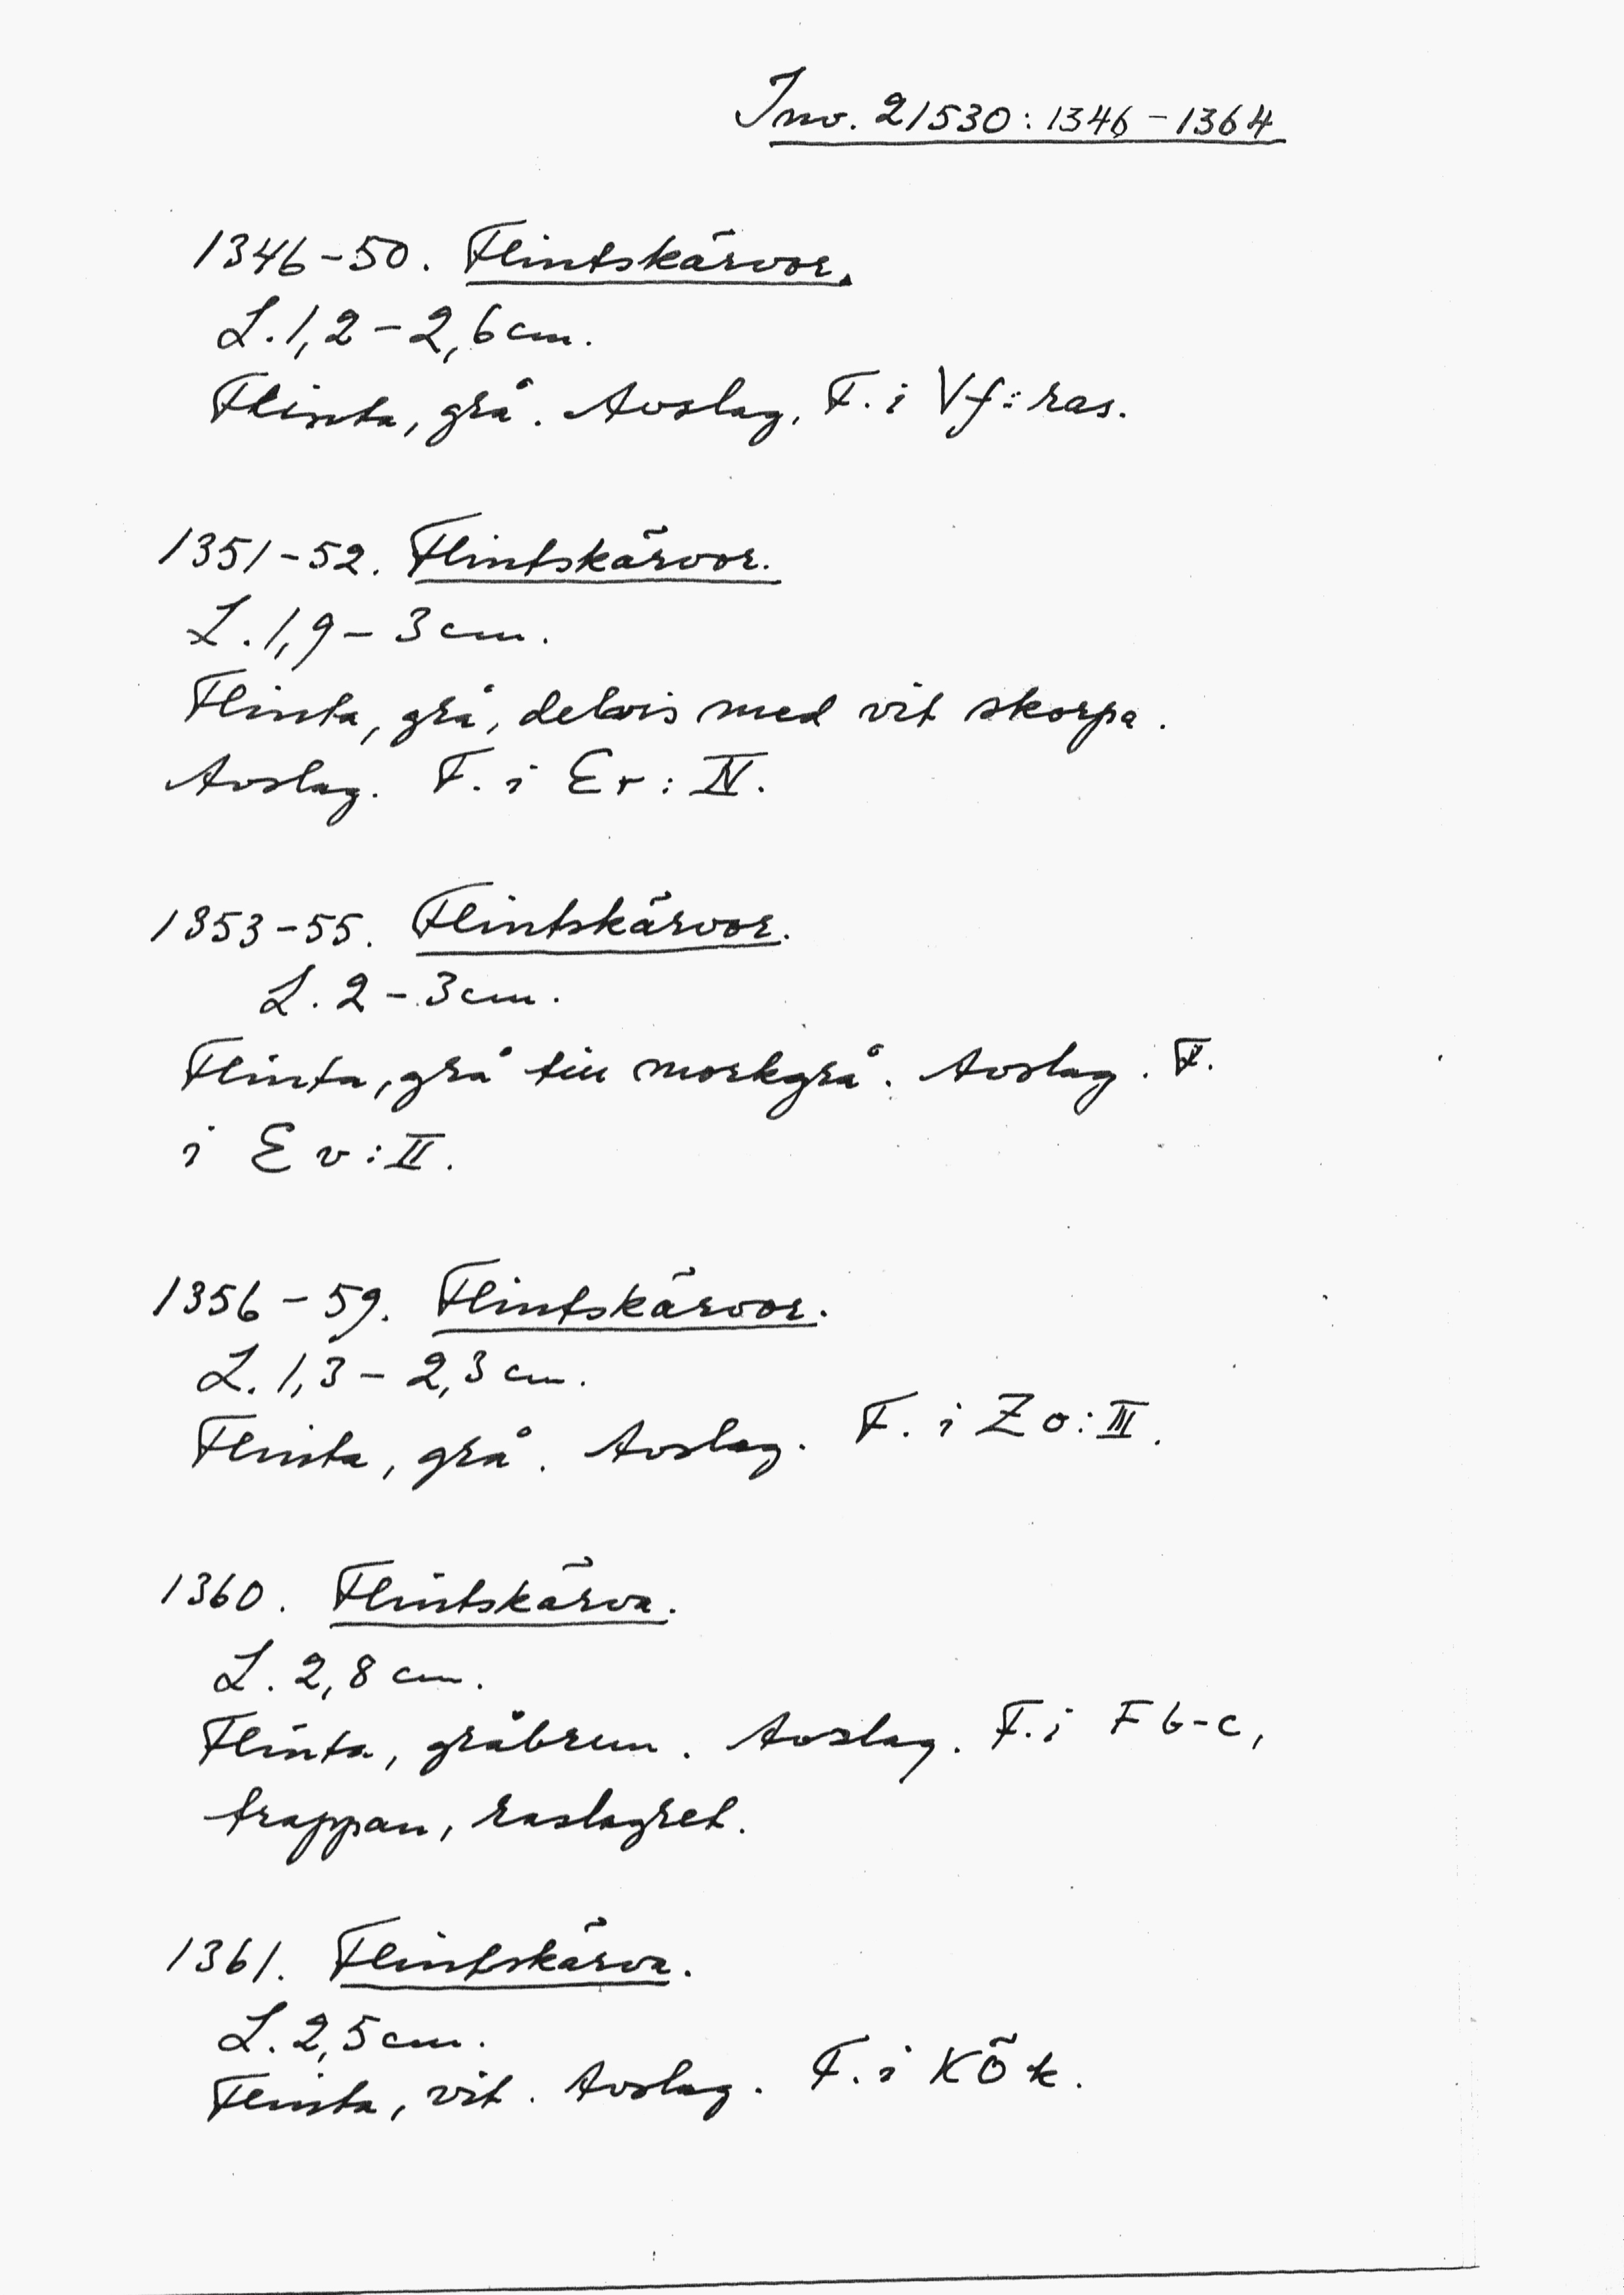 Inv. 21530:1346-1364
1346-50. Flintskärvor.
L. 1,2-2,6 cm.
Flinta, grå. Avslag, F. i Vf:ras.
1351-52. Flintskärvor.
L. 1,9-3 cm.
Flinta, grå, delvis med vit skorpa.
Avslag. F. i Er: IV.
1353-55. Flintskärvor.
L. 2-3 cm.
Flinta, grå till morkgrå. Avslag. F.
i Ev:II.
1356-59. Flintskärvor.
L. 1,3-2,3 cm.
Flinta, grå. Avslag. F. i Zo:III.
1360. Flintskärva.
L. 2,8 cm.
Flinta, gråbrun. Avslag. F. i Fb-c,
trappan, raslagret.
1361. Flintskärva.
L. 2,5 cm.
Flinta, vit. Avslag. F. i KÖk.